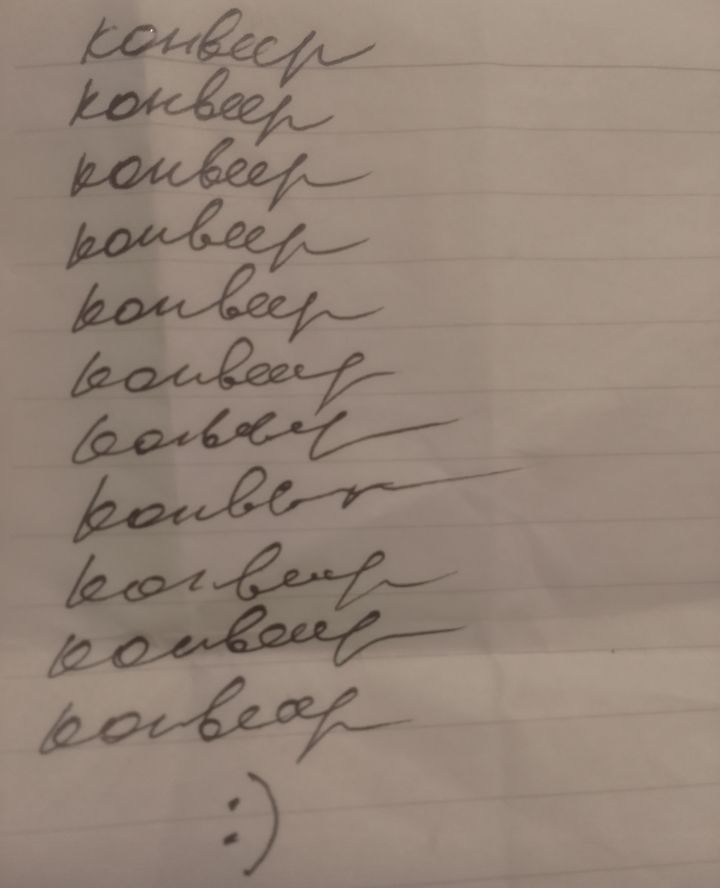 конвеер
конвеер
конвеер
конвеер
конвеер
конвеер
конвеер
конвеер
конвеер
конвеер
конвеер
:)